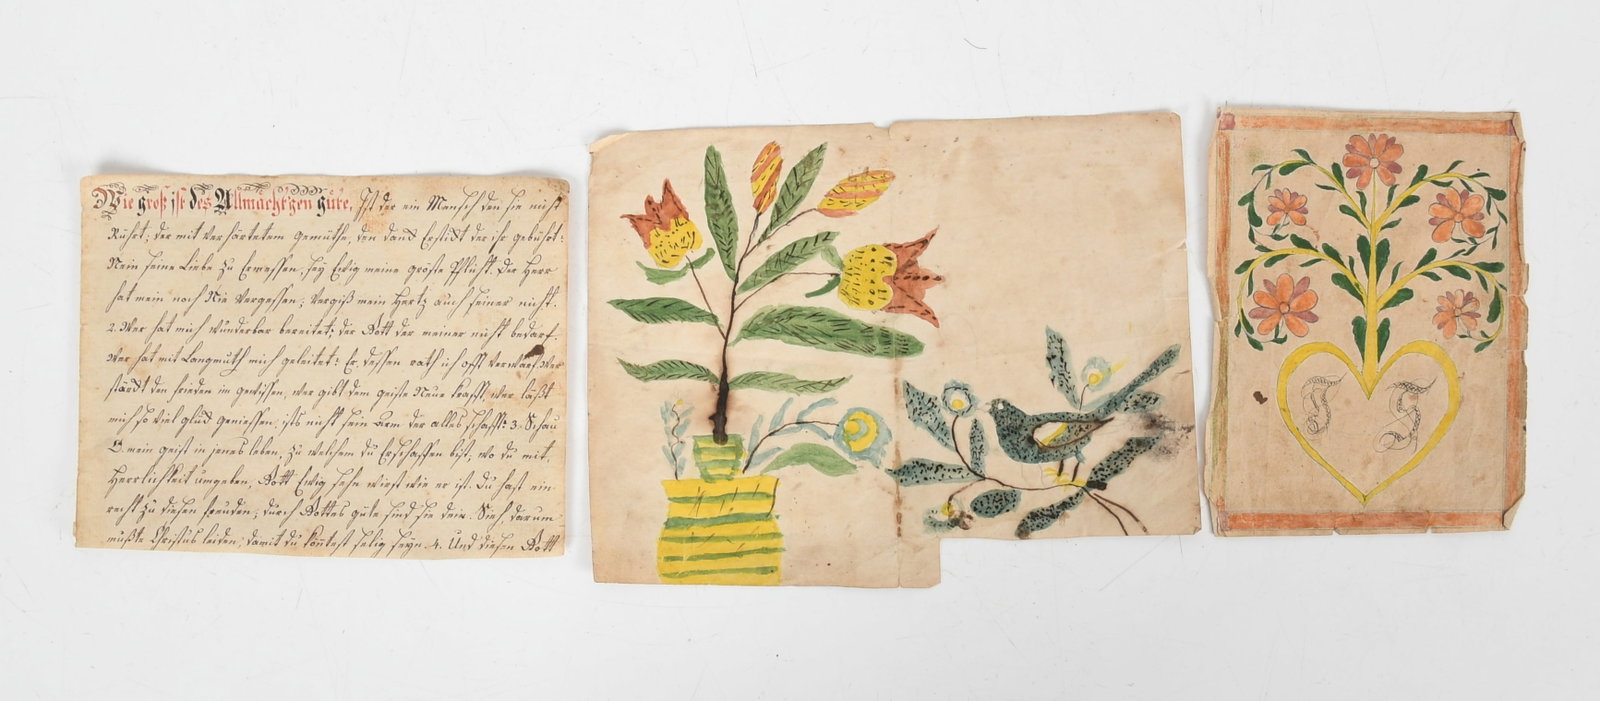 Wie groß ist des Allmächtgen güte, Ist der ein Mensch den sie nicht
Rührt; der mit verhärtetem gemüthe, den danck Erstickt der ihr gebührt:
Nein seine Liebe zu Ermessen, sey Ewig meine größte Pflicht. Der Herr
hat mein noch Nie vergessen; vergiß mein Hertz auch seiner nicht.
2. Wer hat mich wunderbar bereitet; der Gott der meiner nicht bedarf.
Wer hat mit Langmuth mich geleitet: Er, dessen rath ich offt verwarf. Wer
stärckt den frieden im gewissen, wer gibt dem geiste Neue krafft, wer läßt
mich so viel glück geniessen, ists nicht sein Arm der alles schafft: 3. Schau
O. mein geist in jenes leben; zu welchem du Erschaffen bist; wo du mit
Herrlichkeit umgeben, Gott Ewig sehn wirst wie er ist. Du hast ein
recht zu diesen freuden; durch Gottes güte sind sie dein. Sieh, darum
mußte Christus leiden; damit du köntest selig seyn. 4. Und diesen Gott